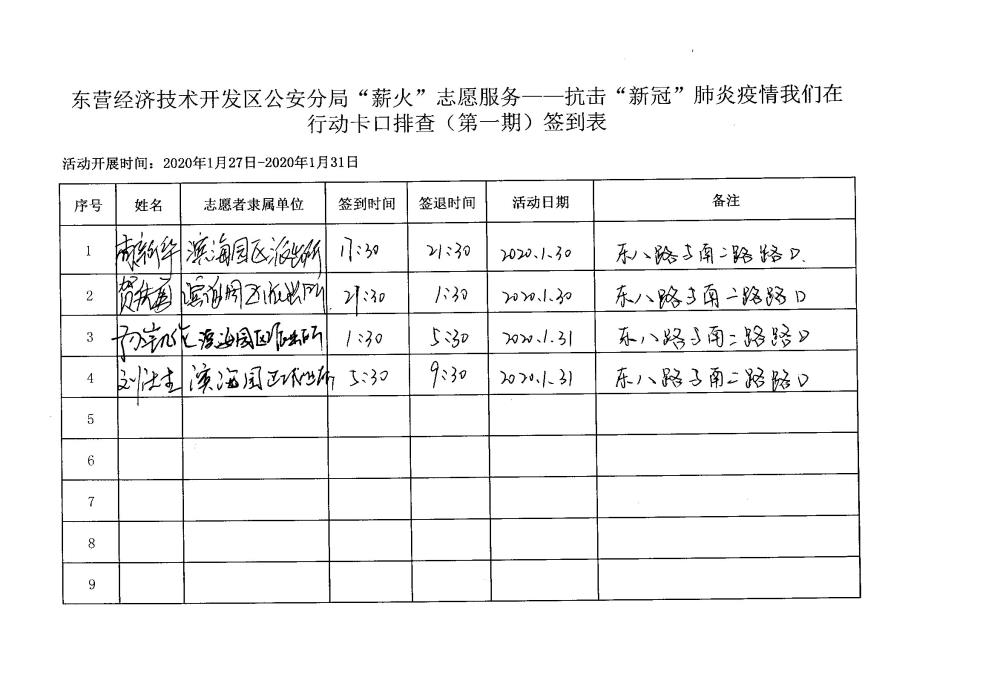 东营经济技术开发区公安分局“薪火”志愿服务——抗击“新冠”肺炎疫情我们在
行动卡口排查（第一期）签到表
活动开展时间：2020年1月27日-2020年1月31日
序号 姓名 志愿者隶属单位 签到时间 签退时间 活动日期 备注
1 滨海园区派出所 17:30 21:30 2020.1.30 东八路与南二路路口.
2 滨海园区派出所 21:30 1:30 2020.1.30 东八路与南二路路口
3 滨海园区派出所 1:30 5:30 2020.1.31 东八路与南二路路口
4 滨海园区派出所 5:30 9:30 2020.1.31 东八路与南二路路口
5
6
7
8
9